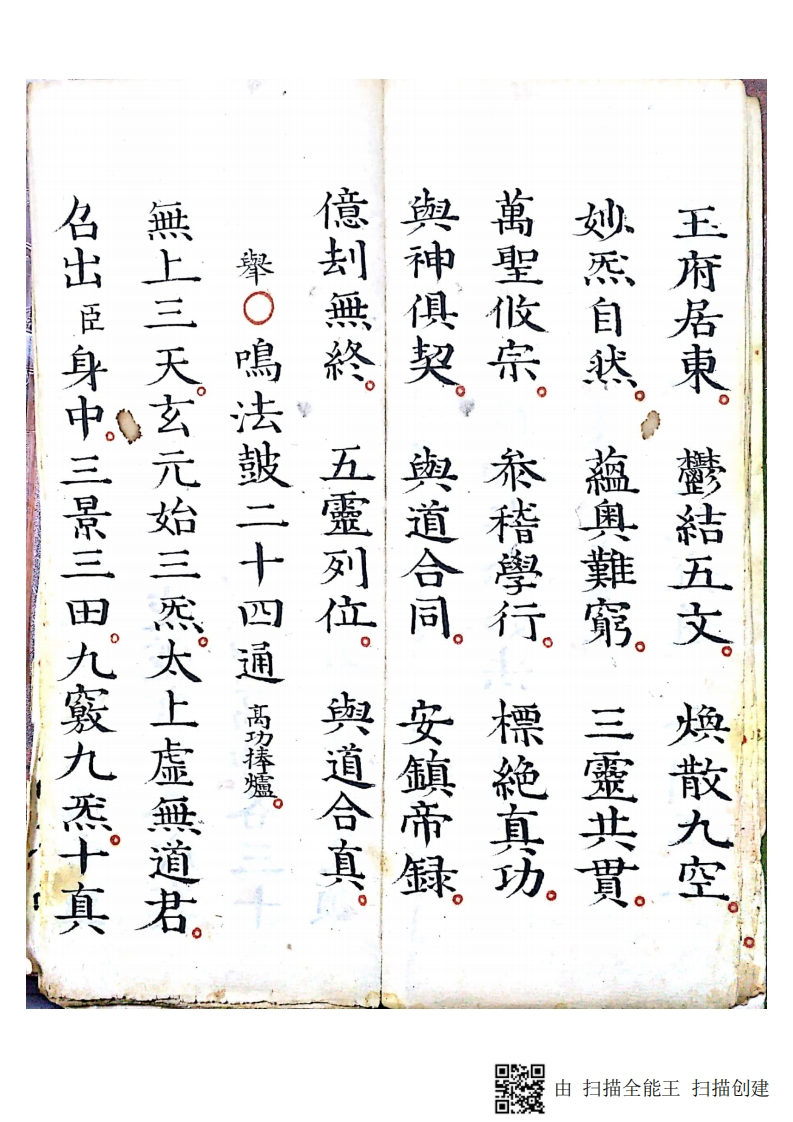 玉府居東。鬱結五文。煥散九空。
妙炁自然。蘊奧難窮。三靈共貫。
萬聖攸宗。叅稽學行。標絕真功。
與神俱契。與道合同。安鎮帝録。
億刦無終。五靈列位。與道合真。
舉○鳴法鼓二十四通 高功捧爐。
無上三天。玄元始三炁。太上虛無道君。
召出臣身中。三景三田。九竅九炁。十真
由 扫描全能王 扫描创建